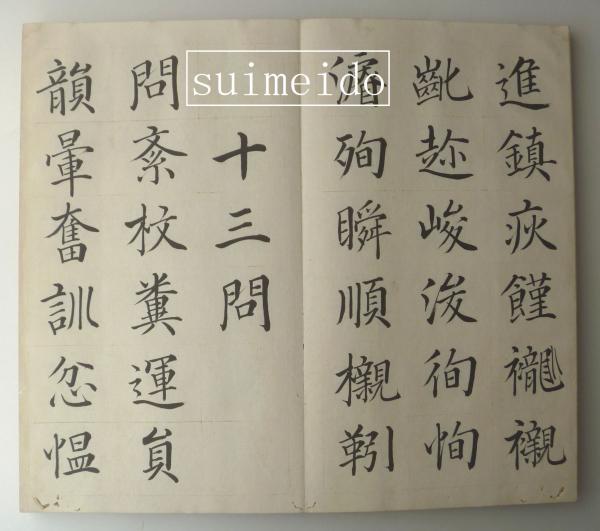 進鎮疢饉襯
齔趂峻浚徇恂
濬殉瞬順櫬靷
十三問
問紊糞運貟
韻暈奮訓忿愠
suimeido